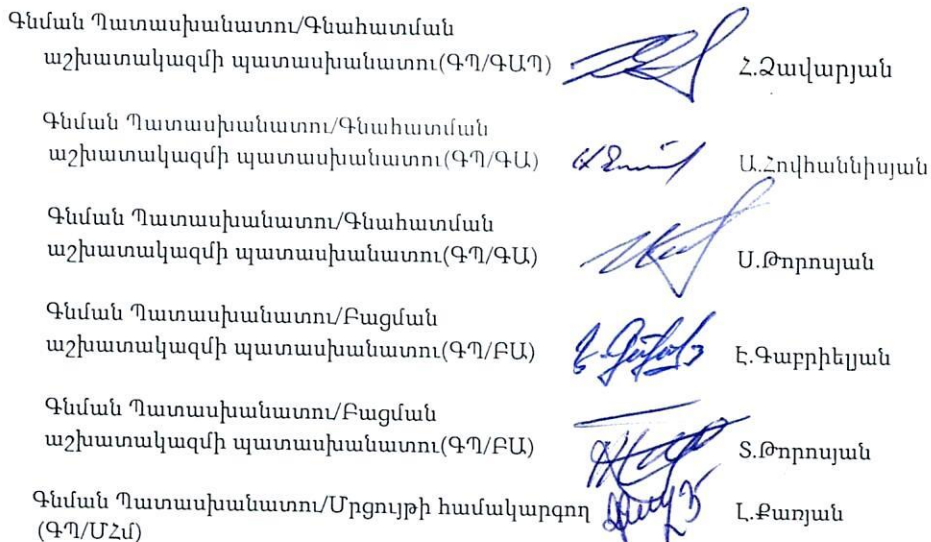 Գնման Պատասխանատու/Գնահատման
աշխատակազմի պատասխանատու(ԳՊ/ԳԱՊ) Հ.Զավարյան
Գնման Պատասխանատու/Գնահատման
աշխատակազմի պատասխանատու(ԳՊ/ԳԱ) Ա.Հովհաննիսյան
Գնման Պատասխանատու/Գնահատման
աշխատակազմի պատասխանատու(ԳՊ/ԳԱ) Ս.Թորոսյան
Գնման Պատասխանատու/Բացման
աշխատակազմի պատասխանատու(ԳՊ/ԲԱ) Է.Գաբրիելյան
Գնման Պատասխանատու/Բացման
աշխատակազմի պատասխանատու(ԳՊ/ԲԱ) Տ.Թորոսյան
Գնման Պատասխանատու/Մրցույթի համակարգող Լ.Քառյան
(ԳՊ/ՄՀմ)